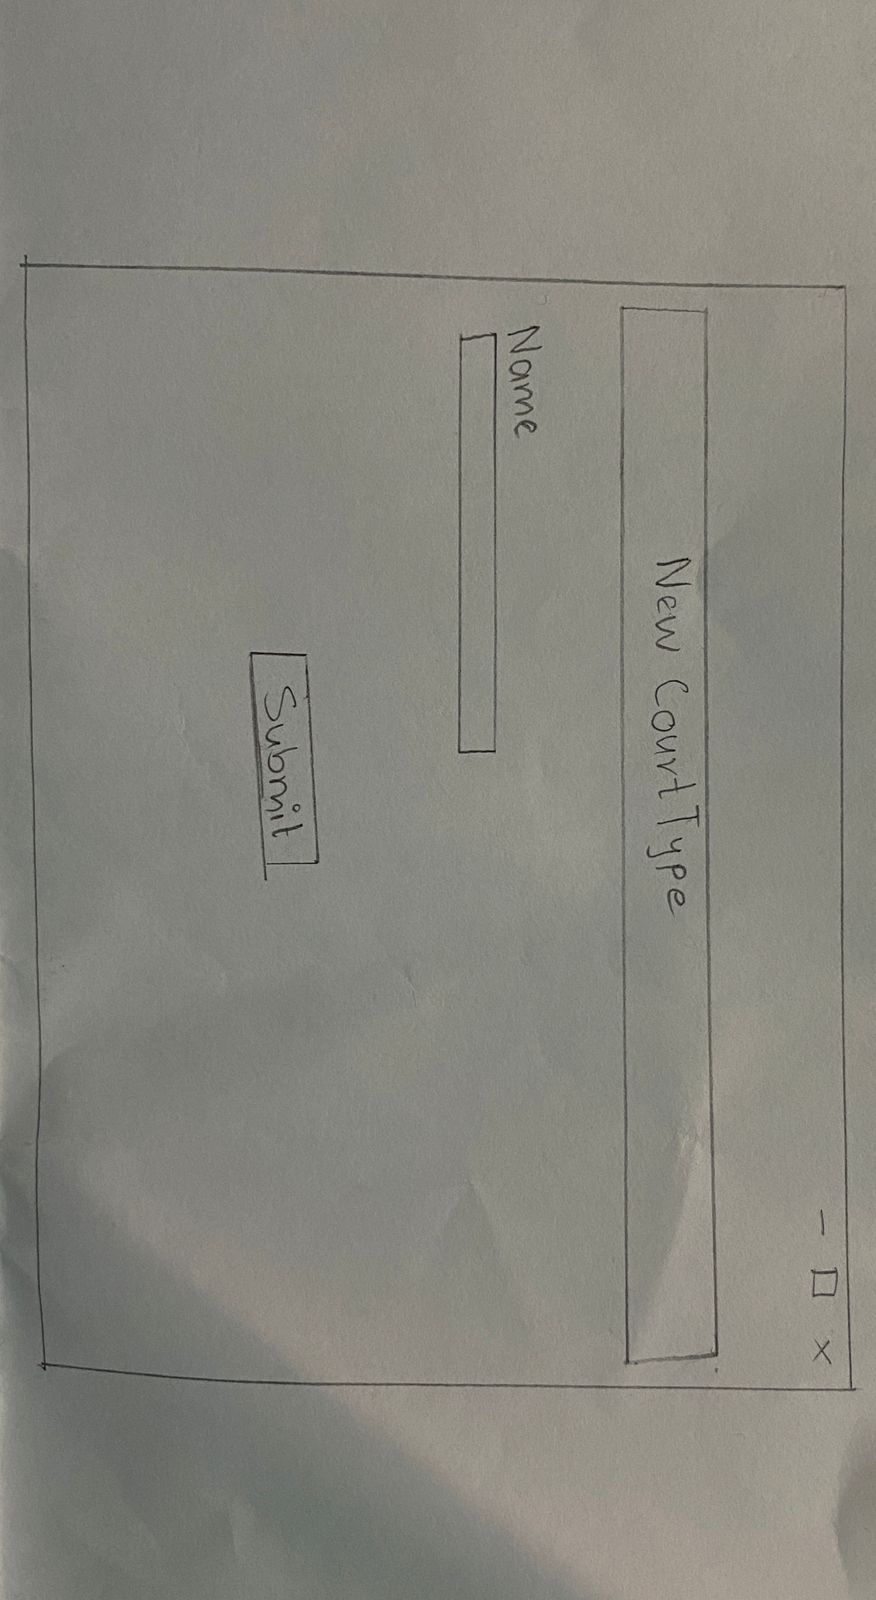 New Court Type
Name
Submit